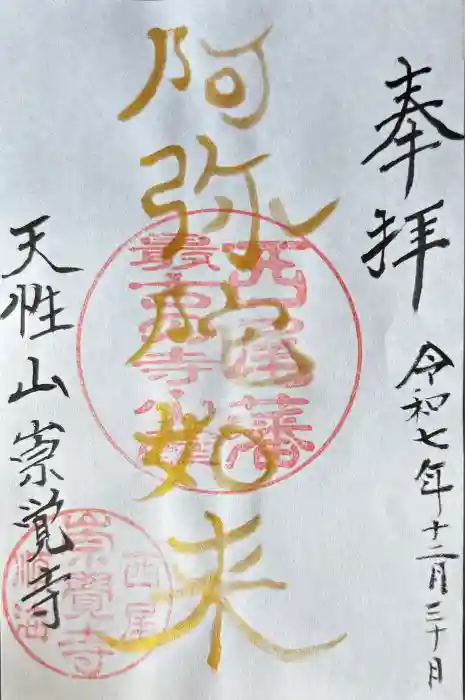 奉拝
令和七年十二月三十日
阿弥陀如来
西尾藩
天性山崇覚寺
崇覺寺
西尾